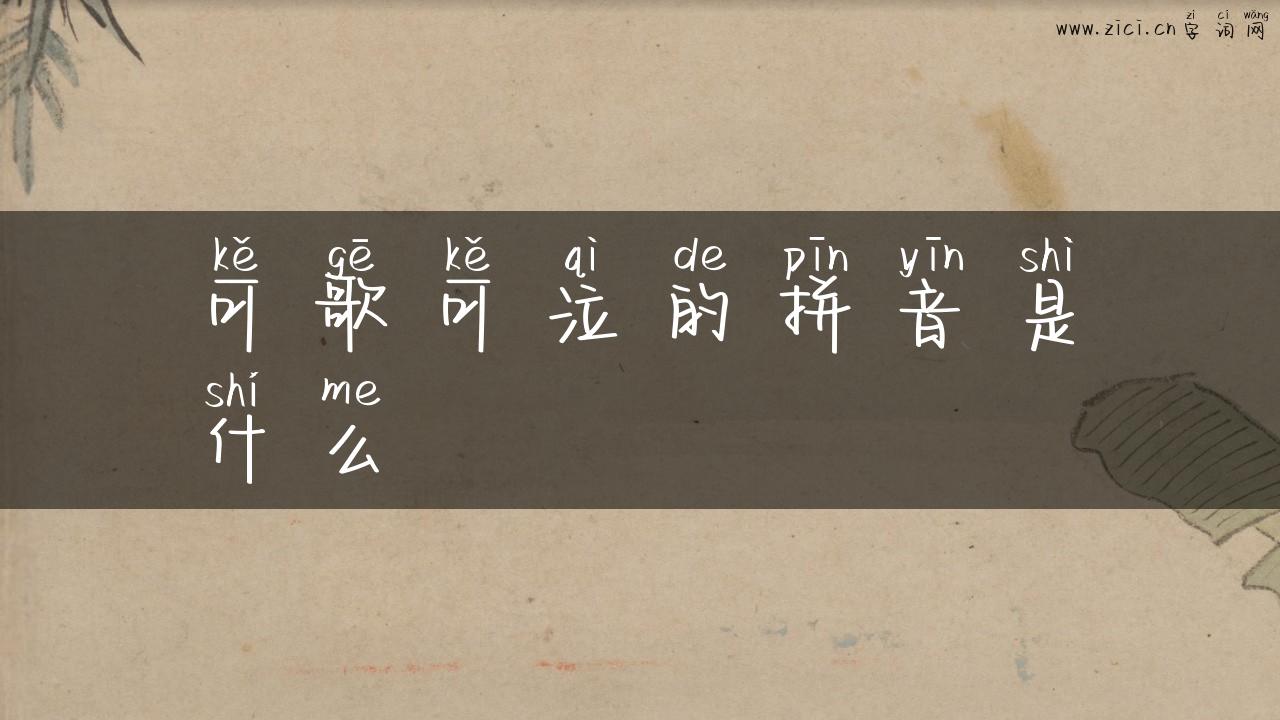 zì cí wǎng
www.zici.cn 字 词 网
kě gē kě qì de pīn yīn shì
可 歌 可 泣 的 拼 音 是
shí me
什 么